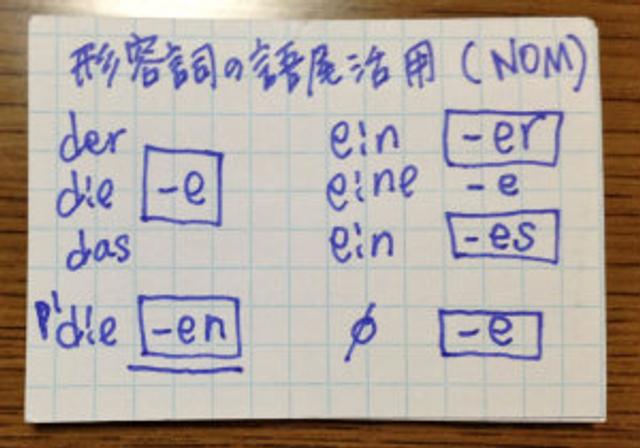 形容詞の語尾活用 (NOM)
der ein -er
die -e eine -e
das ein -es
pl die -en ∅ -e